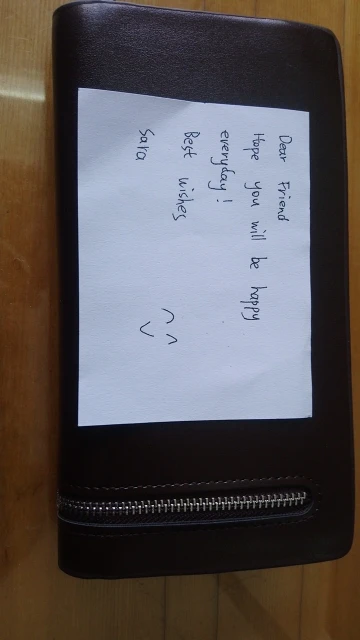 Dear Friend
Hope you will be happy
everyday!
Best wishes
Sara